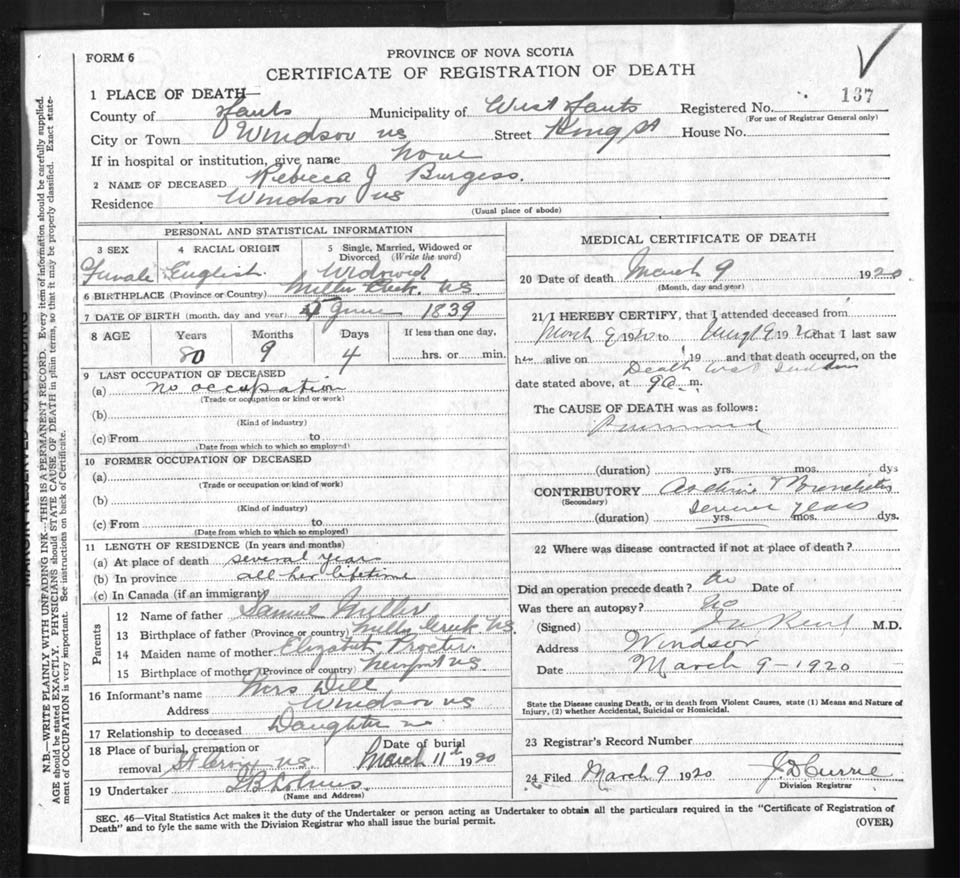 FORM 6
PROVINCE OF NOVA SCOTIA
CERTIFICATE OF REGISTRATION OF DEATH
137
1 PLACE OF DEATH—
County of Hants Municipality of West Hants Registered No.
(For use of Registrar General only)
City or Town Windsor NS Street King St House No.
If in hospital or institution, give name none
2 NAME OF DECEASED Rebecca J Burgess.
Residence Windsor NS
(Usual place of abode)
PERSONAL AND STATISTICAL INFORMATION
3 SEX 4 RACIAL ORIGIN 5 Single, Married, Widowed or Divorced (Write the word)
Female English. Widowed
6 BIRTHPLACE (Province or Country) Miller Creek. NS.
7 DATE OF BIRTH (month, day and year) 5 June 1839
8 AGE Years Months Days If less than one day,
80 9 4 hrs. or min.
9 LAST OCCUPATION OF DECEASED
(a) no occupation
(Trade or occupation or kind or work)
(b)
(Kind of industry)
(c) From to
(Date from which to which so employed)
10 FORMER OCCUPATION OF DECEASED
(a)
(Trade or occupation or kind of work)
(b)
(Kind of industry)
(c) From to
(Date from which to which so employed)
11 LENGTH OF RESIDENCE (In years and months)
(a) At place of death several years
(b) In province all her lifetime
(c) In Canada (if an immigrant)
Parents
12 Name of father Samuel Miller
13 Birthplace of father (Province or country) Miller Creek NS.
14 Maiden name of mother Elizabeth Procter.
15 Birthplace of mother (Province or country) Newport NS.
16 Informant's name Mrs Dill
Address Windsor NS
17 Relationship to deceased Daughter
18 Place of burial, cremation or removal St Croix NS. Date of burial March 11th 1920
19 Undertaker
(Name and Address)
MEDICAL CERTIFICATE OF DEATH
20 Date of death March 9 1920.
(Month, day and year)
21/I HEREBY CERTIFY, that I attended deceased from
March 9 1920 to March 9 1920 that I last saw
h alive on 19 and that death occurred, on the
Death was sudden
date stated above, at 9 a.m.
The CAUSE OF DEATH was as follows:
(duration) yrs. mos. dys
CONTRIBUTORY Asthma & Bronchitis
(Secondary)
several years
(duration) yrs. mos. dys.
22 Where was disease contracted if not at place of death?
Did an operation precede death? no Date of
Was there an autopsy? No
(Signed) M.D.
Address Windsor
Date March 9 - 1920
State the Disease causing Death, or in death from Violent Causes, state (1) Means and Nature of
Injury, (2) whether Accidental, Suicidal or Homicidal.
23 Registrar's Record Number
24 Filed March 9 1920 J. D Currie
Division Registrar
SEC. 46—Vital Statistics Act makes it the duty of the Undertaker or person acting as Undertaker to obtain all the particulars required in the "Certificate of Registration of
Death" and to fyle the same with the Division Registrar who shall issue the burial permit.
(OVER)
MARGIN RESERVED FOR BINDING
N.B.—WRITE PLAINLY WITH UNFADING INK—THIS IS A PERMANENT RECORD. Every item of information should be carefully supplied.
AGE should be stated EXACTLY. PHYSICIANS should STATE CAUSE OF DEATH in plain terms, so that it may be properly classified. Exact statement of OCCUPATION is very important. See instructions on back of Certificate.